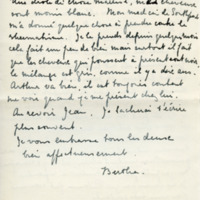 une drôle de chose ..., mes cheveux
sont moins blancs. Mon médecin de
m'a donné quelque chose à prendre contre le
rheumatism. Je le prends depuis quelques mois
cela fait un peu de bien mais surtout il fait
que les cheveux qui poussent à présent sont noirs,
le mélange est gris, comme il y a dix ans.
Arthur va bien, il est toujours content
me voir quand je me présente chez lui.
Au revoir Jean. Je tacherai t'écrire
plus souvent.
Je vous embrasse tous les deux
bien affectueusement.
Berthe.